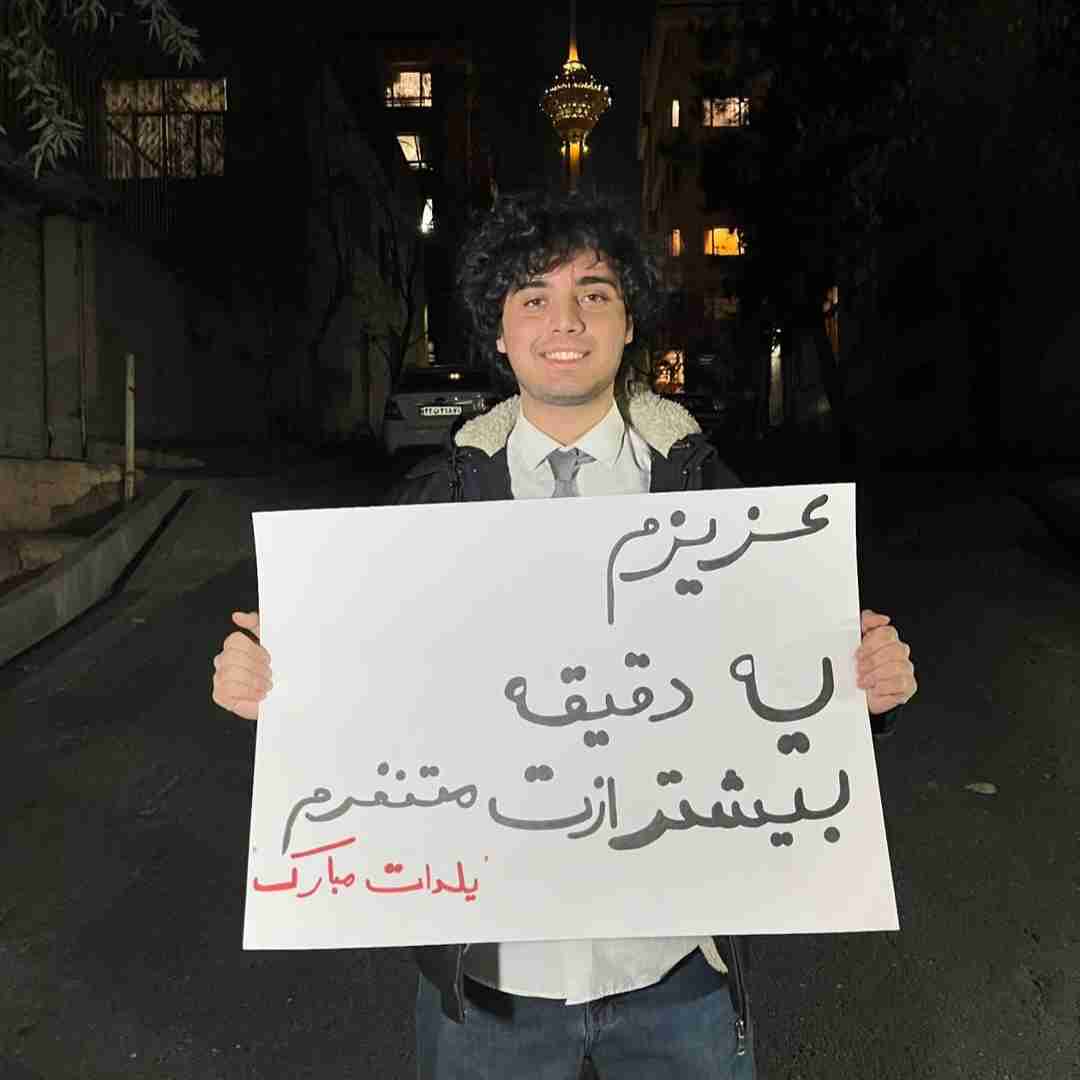 عزیزم
یه دقیقه
بیشتر ازت متنفرم
"یلدات مبارک"